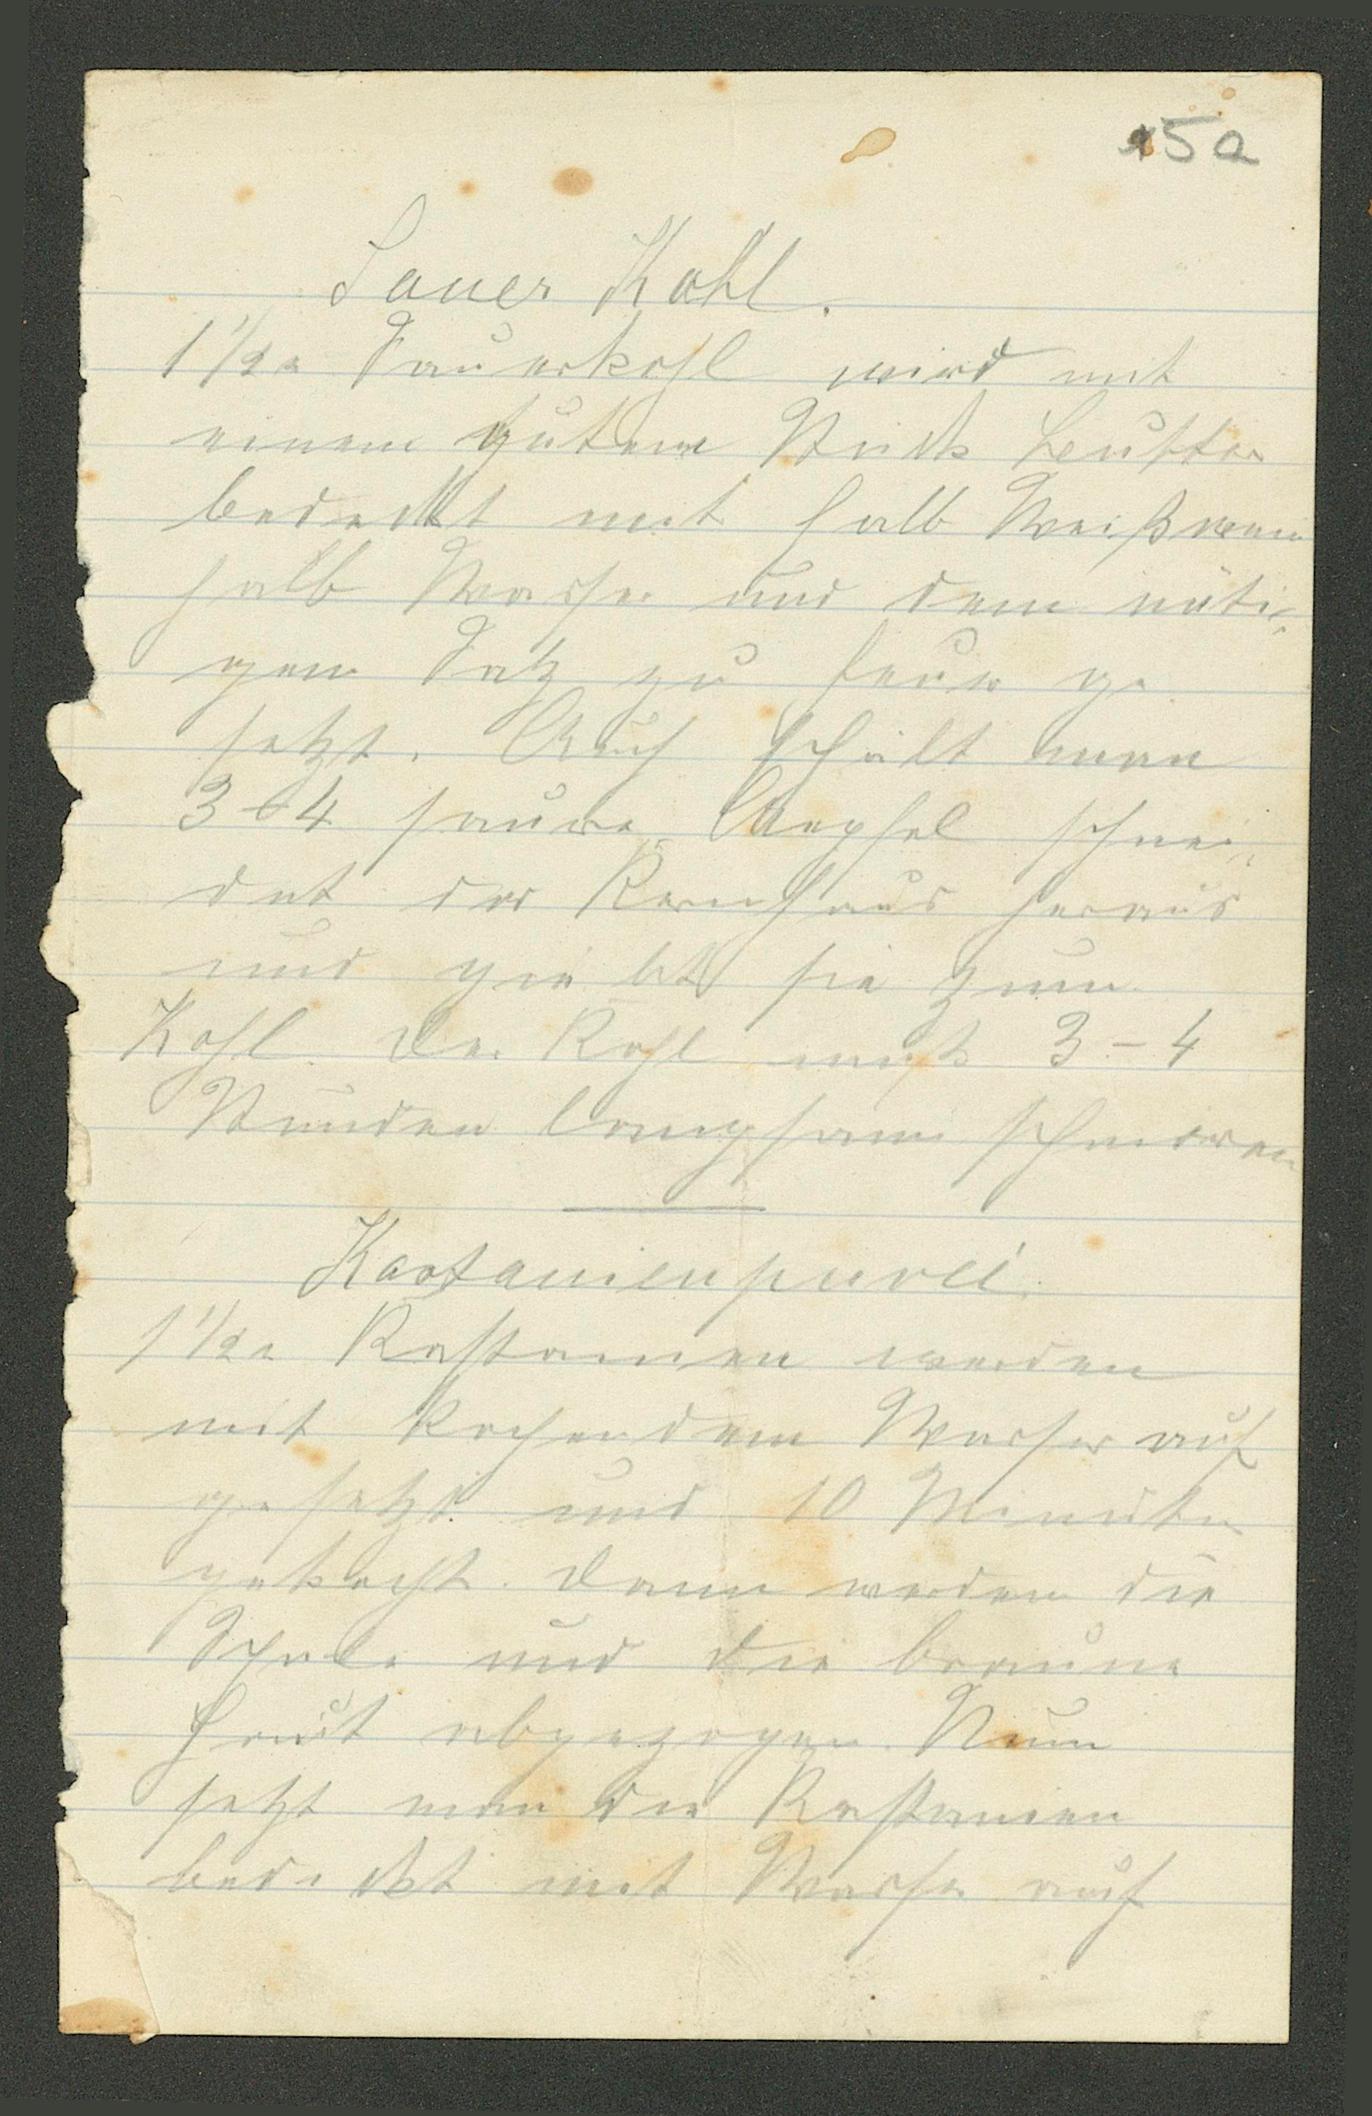 15a
Sauer Kohl.
1 1/2 a Sauerkohl wird mit
einem guten Stück Butter
bedeckt mit halb Weißwein
halb Wasser und dem nöti-
gen Salz zu Feuer ge
setzt. Auch schält man
3-4 saure Aepfel schnei-
det das Kernhaus heraus
und giebt sie zum
Kohl. Der Kohl muß 3-4
Stunden langsam schmoren
Kastanienpureé.
1 1/2 a Kastanien werden
mit kochendem Wasser auf
gesetzt und 10 Minuten
gekocht. Dann werden die
Schale und die braune
Haut abgezogen. Nun
setzt man die Kastanien
bedeckt mit Wasser auf